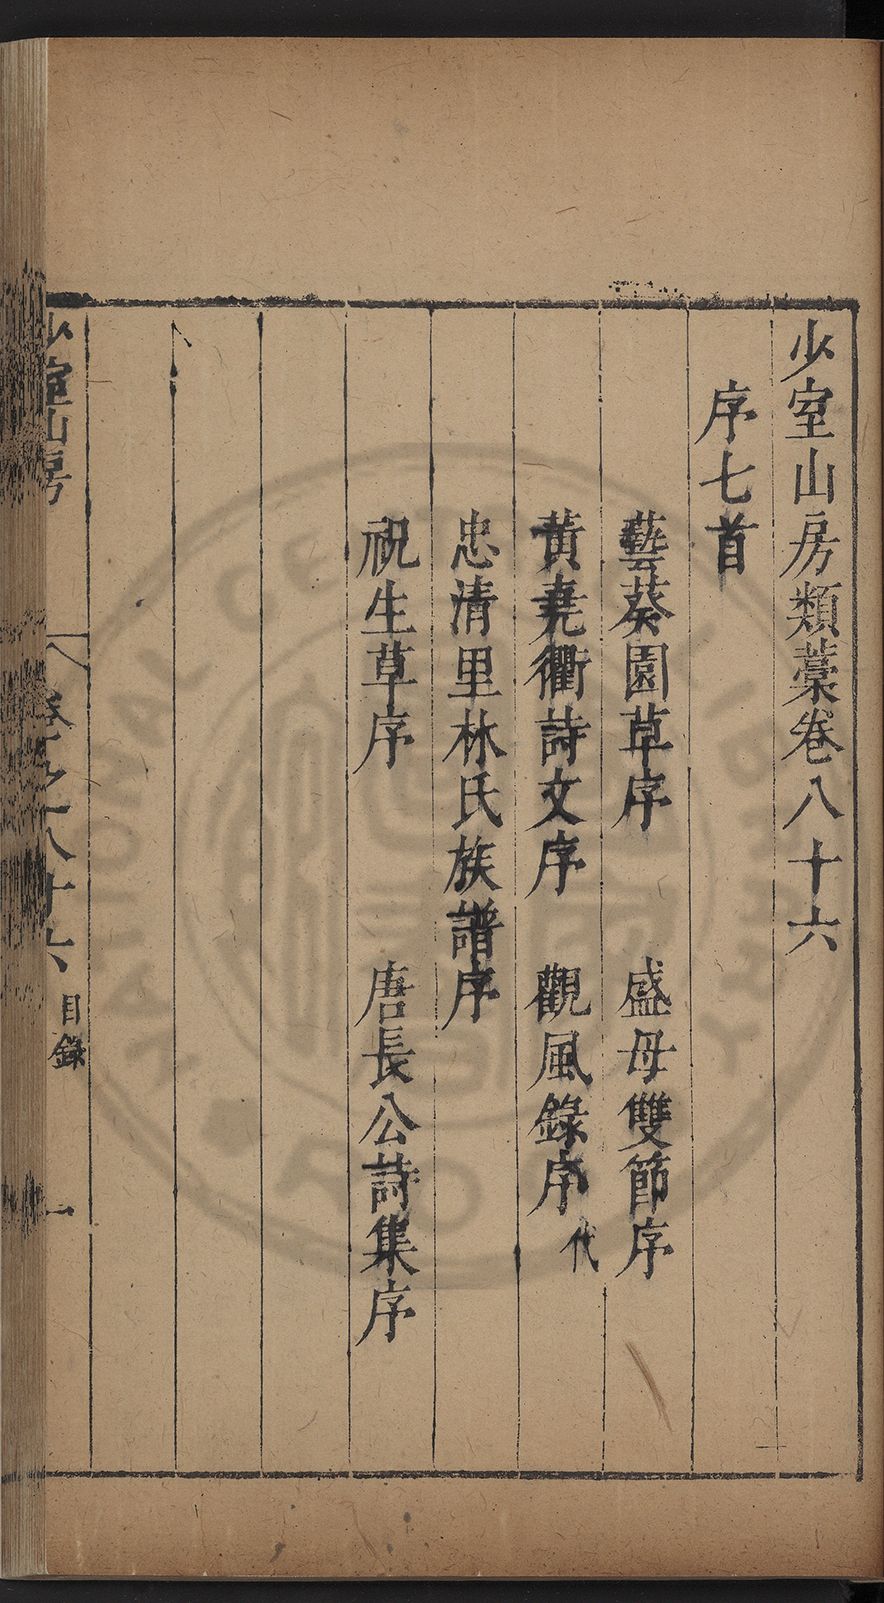 少室山房類藁卷八十六
序七首
藝葵園草序　盛母雙節序
黃堯衢詩文序　觀風錄序代
忠清里林氏族譜序
祝生草序　唐長公詩集序
少室山房　卷之八十六　目錄　一